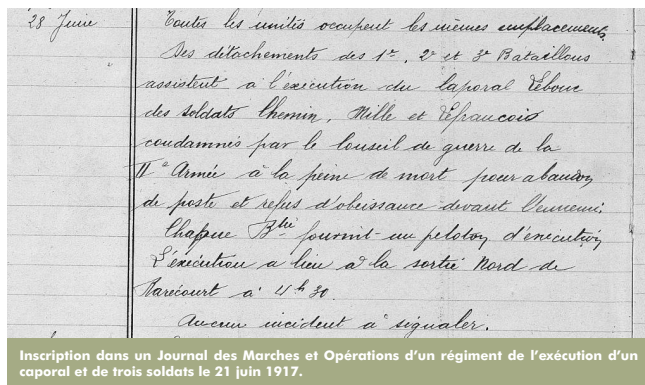 28 Juin
Toutes les unités occupent les mêmes emplacements.
Des détachements des 1er, 2e et 3e Bataillons
assistent à l'exécution du Caporal Lebouc
des soldats Chemin, Hille et Lefrancois
condamnés par le Conseil de guerre de la
IIe Armée à la peine de mort pour abandon
de poste et refus d'obeissance devant l'ennemi.
Chaque Blle fournit un peloton d'exécution
L'éxécution a lieu à la sortie Nord de
Rarécourt à 4h30.
Aucun incident à signaler.
Inscription dans un Journal des Marches et Opérations d'un régiment de l'exécution d'un
caporal et de trois soldats le 21 juin 1917.